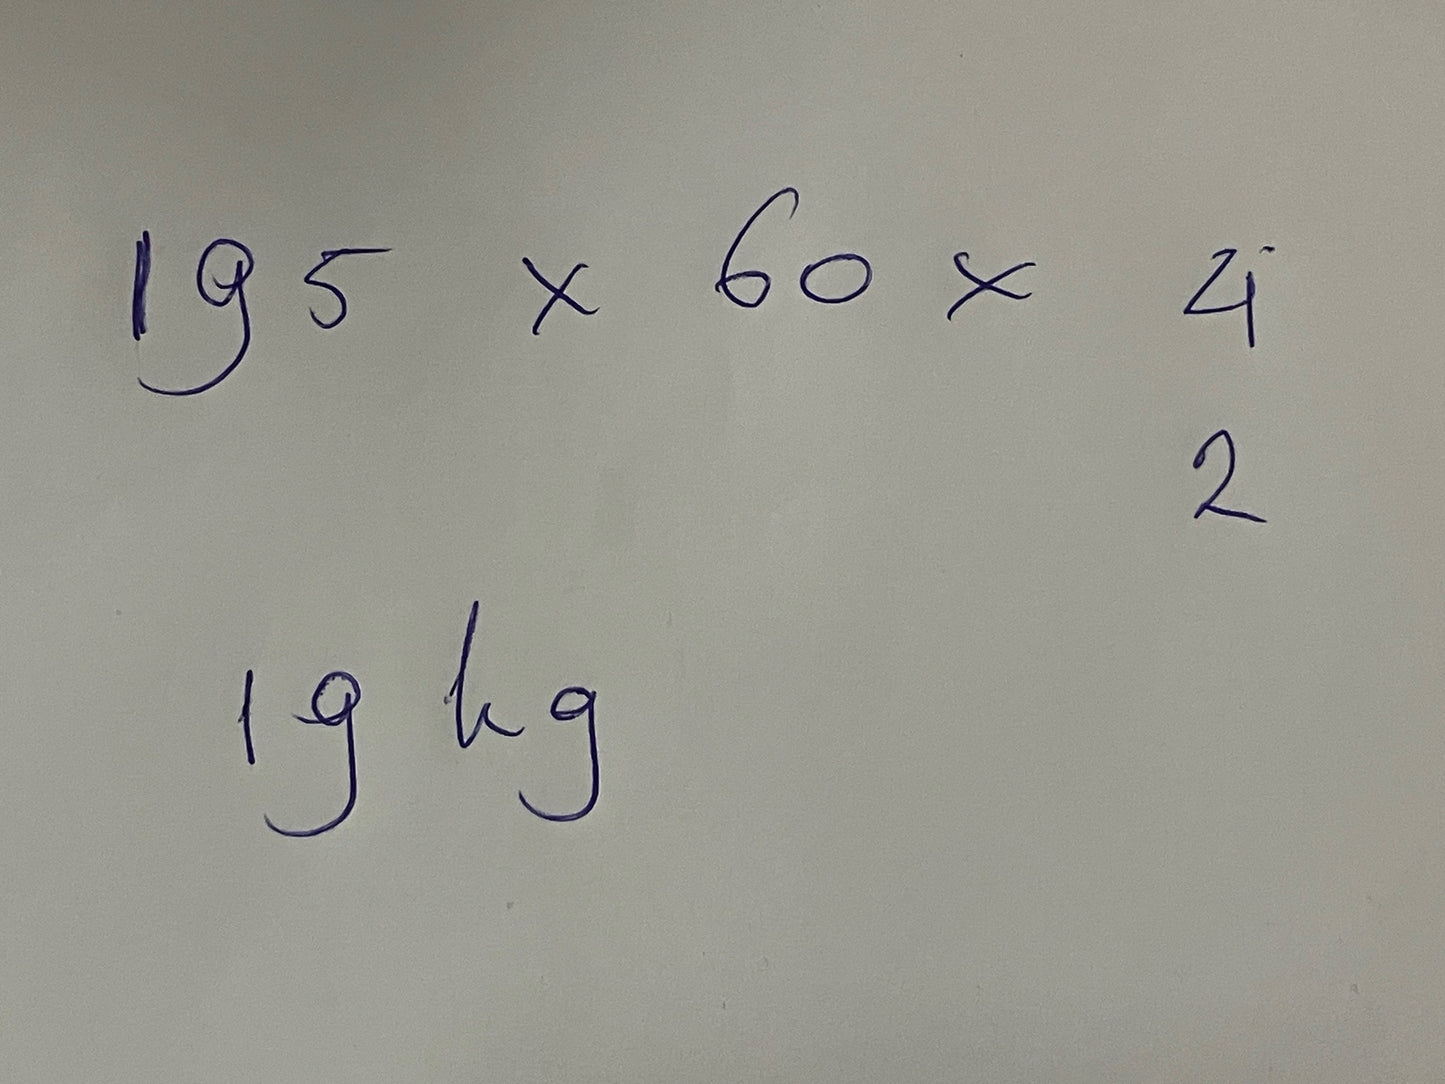 195 x 60 x 4
2
19 kg